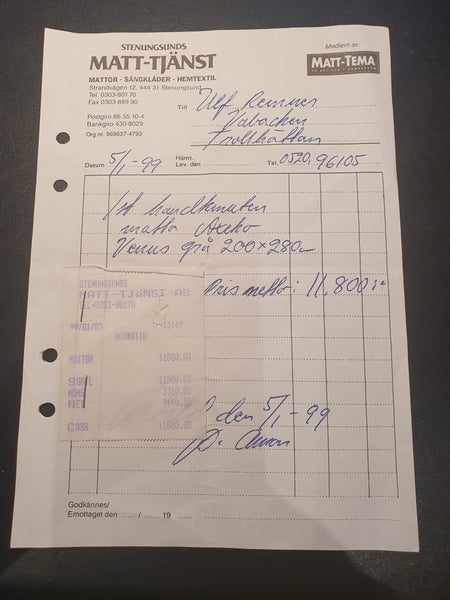 STENUNGSUNDS
MATT-TJÄNST
MATTOR · SÄNGKLÄDER · HEMTEXTIL
Strandvägen 12, 444 31 Stenungsund
Tel. 0303-801 70
Fax 0303-889 90
Postgiro 66 55 10-4
Bankgiro 430-8029
Org.nr. 969637-4793
Medlem av
MATT-TEMA
Till Ulf
Trollhättan
Datum 5/1-99
Hämt.
Lev. den
Tel. 0520, 96105
1st handknuten
matta
Venus grå 200x280
Pris netto: 11.800:-
STENUNGSUNDS
MATT-TJÄNST AB
TEL-0303-80170
99/01/05 13:49
000#8110
MATTOR 11800.00
SUBTL 11800.00
MOMS 2360.00
NET 9440.00
CASH 11800.00
den 5/1-99
Godkännes/
Emottaget den ..... / ..... 19